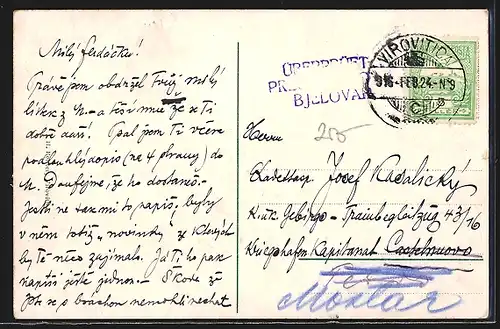 Milý ferdáčku!
Právě jsem obdržel Tvůj milý
lístek z N. – a těší mne že se Ti
dobře daří! Psal jsem Ti včera
dopis (ne 4 strany) do
N. Doufejme, že ho dostaneš.–
Jestli ne tak mi to napiš, byly
v něm totiž „novinky" z kterých
by Tě něco zajímalo. Já Ti ho pak
napíši ještě jednou.– Škoda že
jste se s bráchou nemohli nechat
ÜBERPRÜFT
BJELOVAR
VIROVITICA
916-FEB.24-N9
Herrn
255
Kadettasp. Josef Kadalický
K.u.k. Gebirgs-Trainbegleitzug 43/16
Kriegshafen Kapitanat Castelnuovo
Mostar